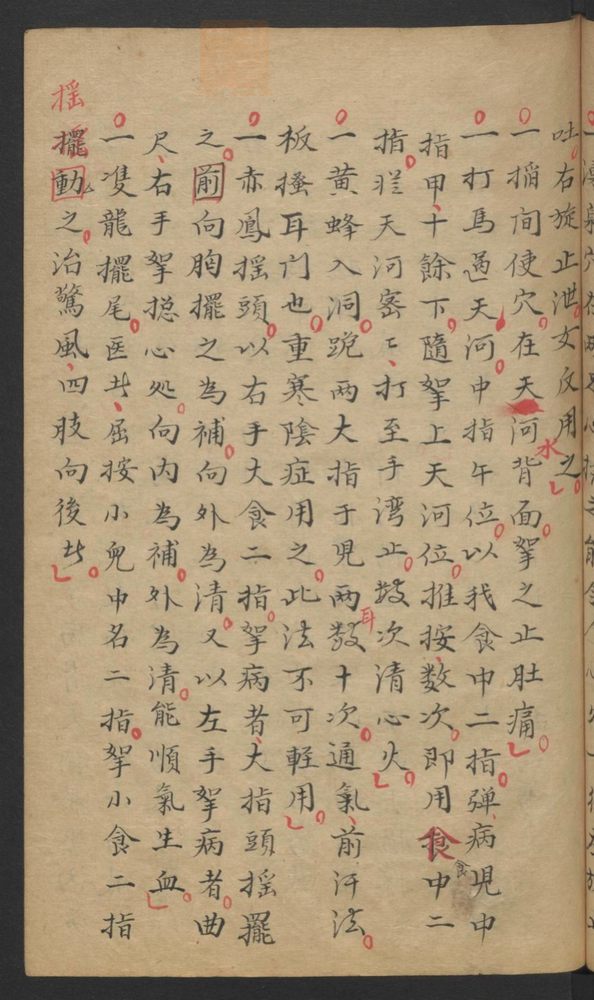 吐右旋止泄女反用之
一搯間使穴在天河水背面拏之止肚痛
一打馬過天河中指午位以我食中二指弹病児中
指甲十餘下隨拏上天河位推按数次即用食中二
指從天河密密打至手湾止数次清心火
一黄蜂入洞跪两大指于児两耳数十次通氣前汗法
板搔耳门也重寒陰症用之此法不可輕用
一赤鳳揺頭以右手大食二指拏病者大指頭揺擺
之前向胸擺之為補向外為清又以左手拏病者曲
尺右手拏捴心処向内為補外為清能順氣生血
一隻龍擺尾医者屈按小児中名二指拏小食二指
揺擺動之治驚風四肢向後者